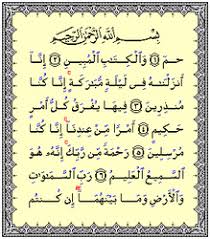 بِسْمِ اللَّهِ الرَّحْمَٰنِ الرَّحِيمِ
حمٓ ﴿١﴾ وَالْكِتَٰبِ الْمُبِينِ ﴿٢﴾ إِنَّآ
أَنزَلْنَٰهُ فِى لَيْلَةٍ مُّبَٰرَكَةٍ إِنَّا كُنَّا
مُنذِرِينَ ﴿٣﴾ فِيهَا يُفْرَقُ كُلُّ أَمْرٍ
حَكِيمٍ ﴿٤﴾ أَمْرًا مِّنْ عِندِنَآ إِنَّا كُنَّا
مُرْسِلِينَ ﴿٥﴾ رَحْمَةً مِّن رَّبِّكَ إِنَّهُ هُوَ
السَّمِيعُ الْعَلِيمُ ﴿٦﴾ رَبِّ السَّمَٰوَٰتِ
وَالْأَرْضِ وَمَا بَيْنَهُمَآ إِن كُنتُم